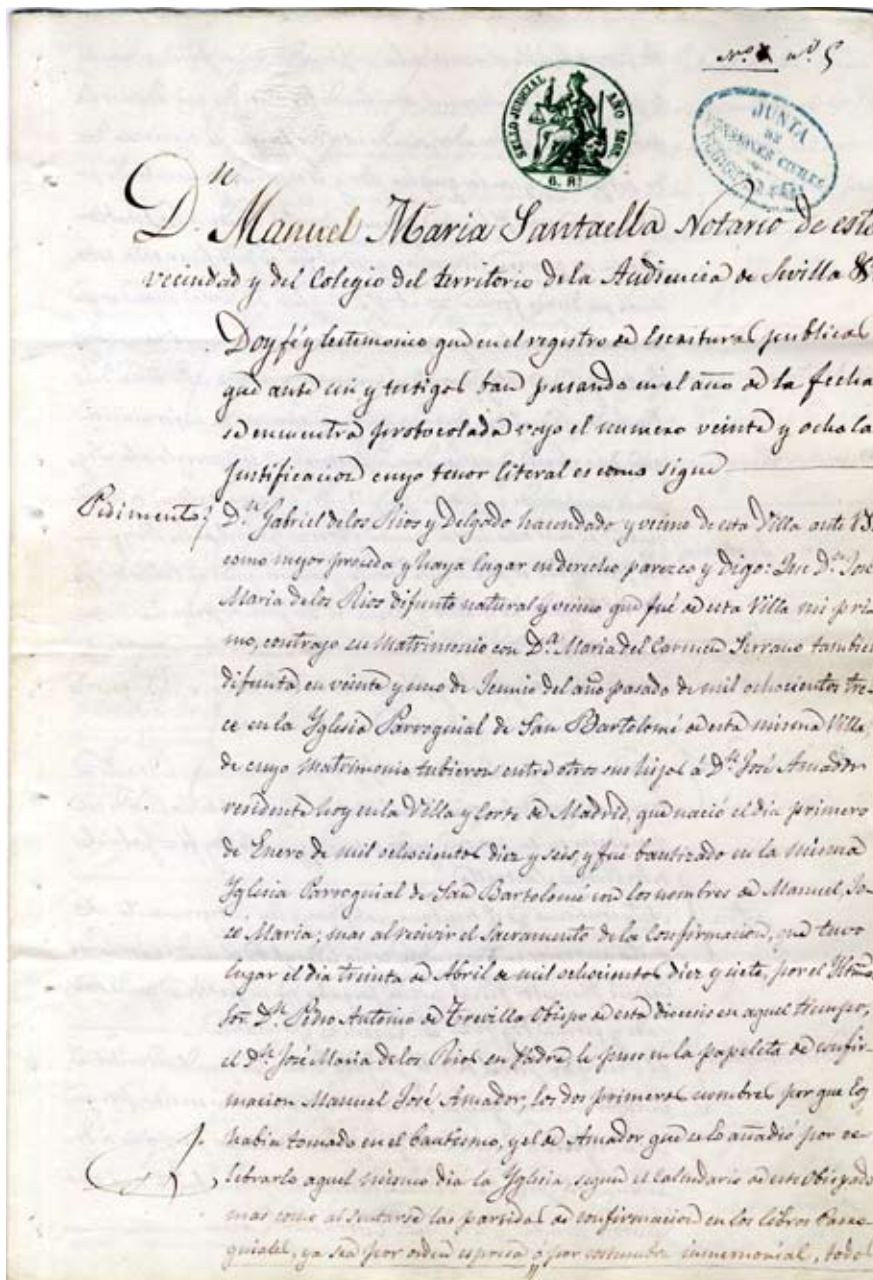 nº 5
SELLO JUDICIAL AÑO 1868
6. Rˢ
JUNTA
DE
PENSIONES CIVILES
Dⁿ Manuel Maria Santaella Notario de esta
vecindad y del Colegio del territorio de la Audiencia de Sevilla &ª
Doy fé y testimonio que en el registro de Escrituras publicas
que ante mi y testigos han pasando en el año de la fecha
se encuentra protocolada vajo el numero veinte y ocho la
justificacion cuyo tenor literal es como sigue
Pedimento; Dⁿ Gabriel de los Rios y Delgado hacendado y vecino de esta Villa ante VS.
como mejor proceda y haya lugar en derecho parezco y digo: Que Dⁿ José
Maria de los Rios difunto natural y vecino que fué de esta Villa mi pri-
mo, contrajo su matrimonio con Dª Maria del Carmen Serrano tambien
difunta en veinte y uno de Junio del año pasado de mil ochocientos tre-
ce en la Yglesia Parroquial de San Bartolomé de esta misma Villa,
de cuyo matrimonio tubieron entre otros sus hijos á Dⁿ José Amador
residente hoy en la Villa y Corte de Madrid, que nació el dia primero
de Enero de mil ochocientos diez y seis, y fué bautizado en la misma
Yglesia Parroquial de San Bartolomé con los nombres de Manuel, Jo-
sé Maria; mas al recivir el Sacramento de la Confirmacion, que tuvo
lugar el dia treinta de Abril de mil ochocientos diez y siete, por el Yltmo
Sor. Dⁿ Pedro Antonio de Trevilla Obispo de esta diocesis en aquel tiempo,
el Dⁿ José Maria de los Rios su Padre, le puso en la papeleta de confir-
macion Manuel José Amador, los dos primeros nombres por que los
habia tomado en el bautismo, y el de Amador que se lo añadió por ce-
lebrarlo aquel mismo dia la Yglesia, segun el Calendario de este Obispado
mas como al sentarse las partidas de confirmacion en los libros Parro-
quiales, ya sea por orden espresa o por costumbre inmemorial, todos